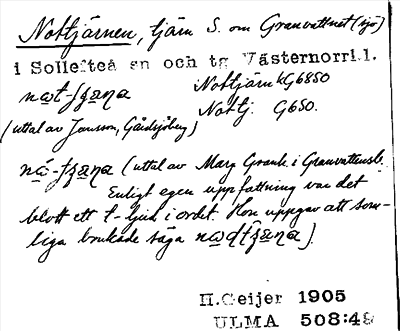 Nottjärnen, tjärn S. om Granvattnet (sjö)
i Sollefteå sn och tg Västernorrl.
Nottjärn kG6850
Nottj. G650.
(uttal av Jansson, Gårdsjöberg)
(uttal av Marg Grank. i Granvattensb.
Enligt egen uppfattning var det
blott ett t-ljud i ordet. Hon uppgav att som-
liga brukade säga
H.Geijer 1905
ULMA 508:48